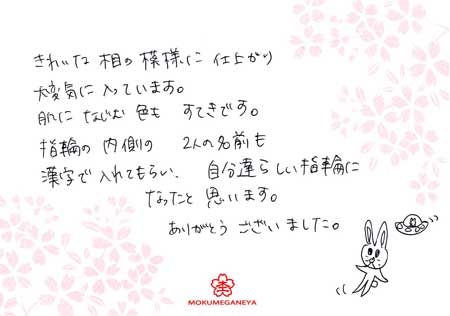 きれいな相の模様に仕上がり
大変気に入っています。
肌になじむ色もすてきです。
指輪の内側の2人の名前も
漢字で入れてもらい、自分達らしい指輪に
なったと思います。
ありがとうございました。
MOKUMEGANEYA